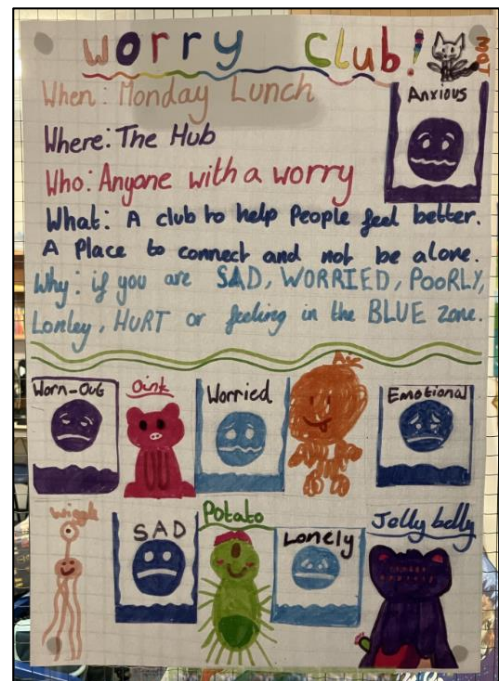 Worry Club!
When: Monday Lunch
Anxious
Where: The Hub
Who: Anyone with a worry
What: A club to help People feel better.
A Place to connect and not be alone.
Why: if you are SAD, WORRIED, POORLY,
Lonley, HURT or feeling in the BLUE zone.
Worn-Out
Oink
Worried
Emotional
Wiggle
SAD
Potato
Lonely
Jelly belly